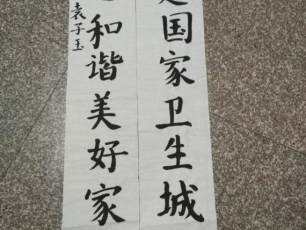 国家卫生城
和谐美好家
袁子玉